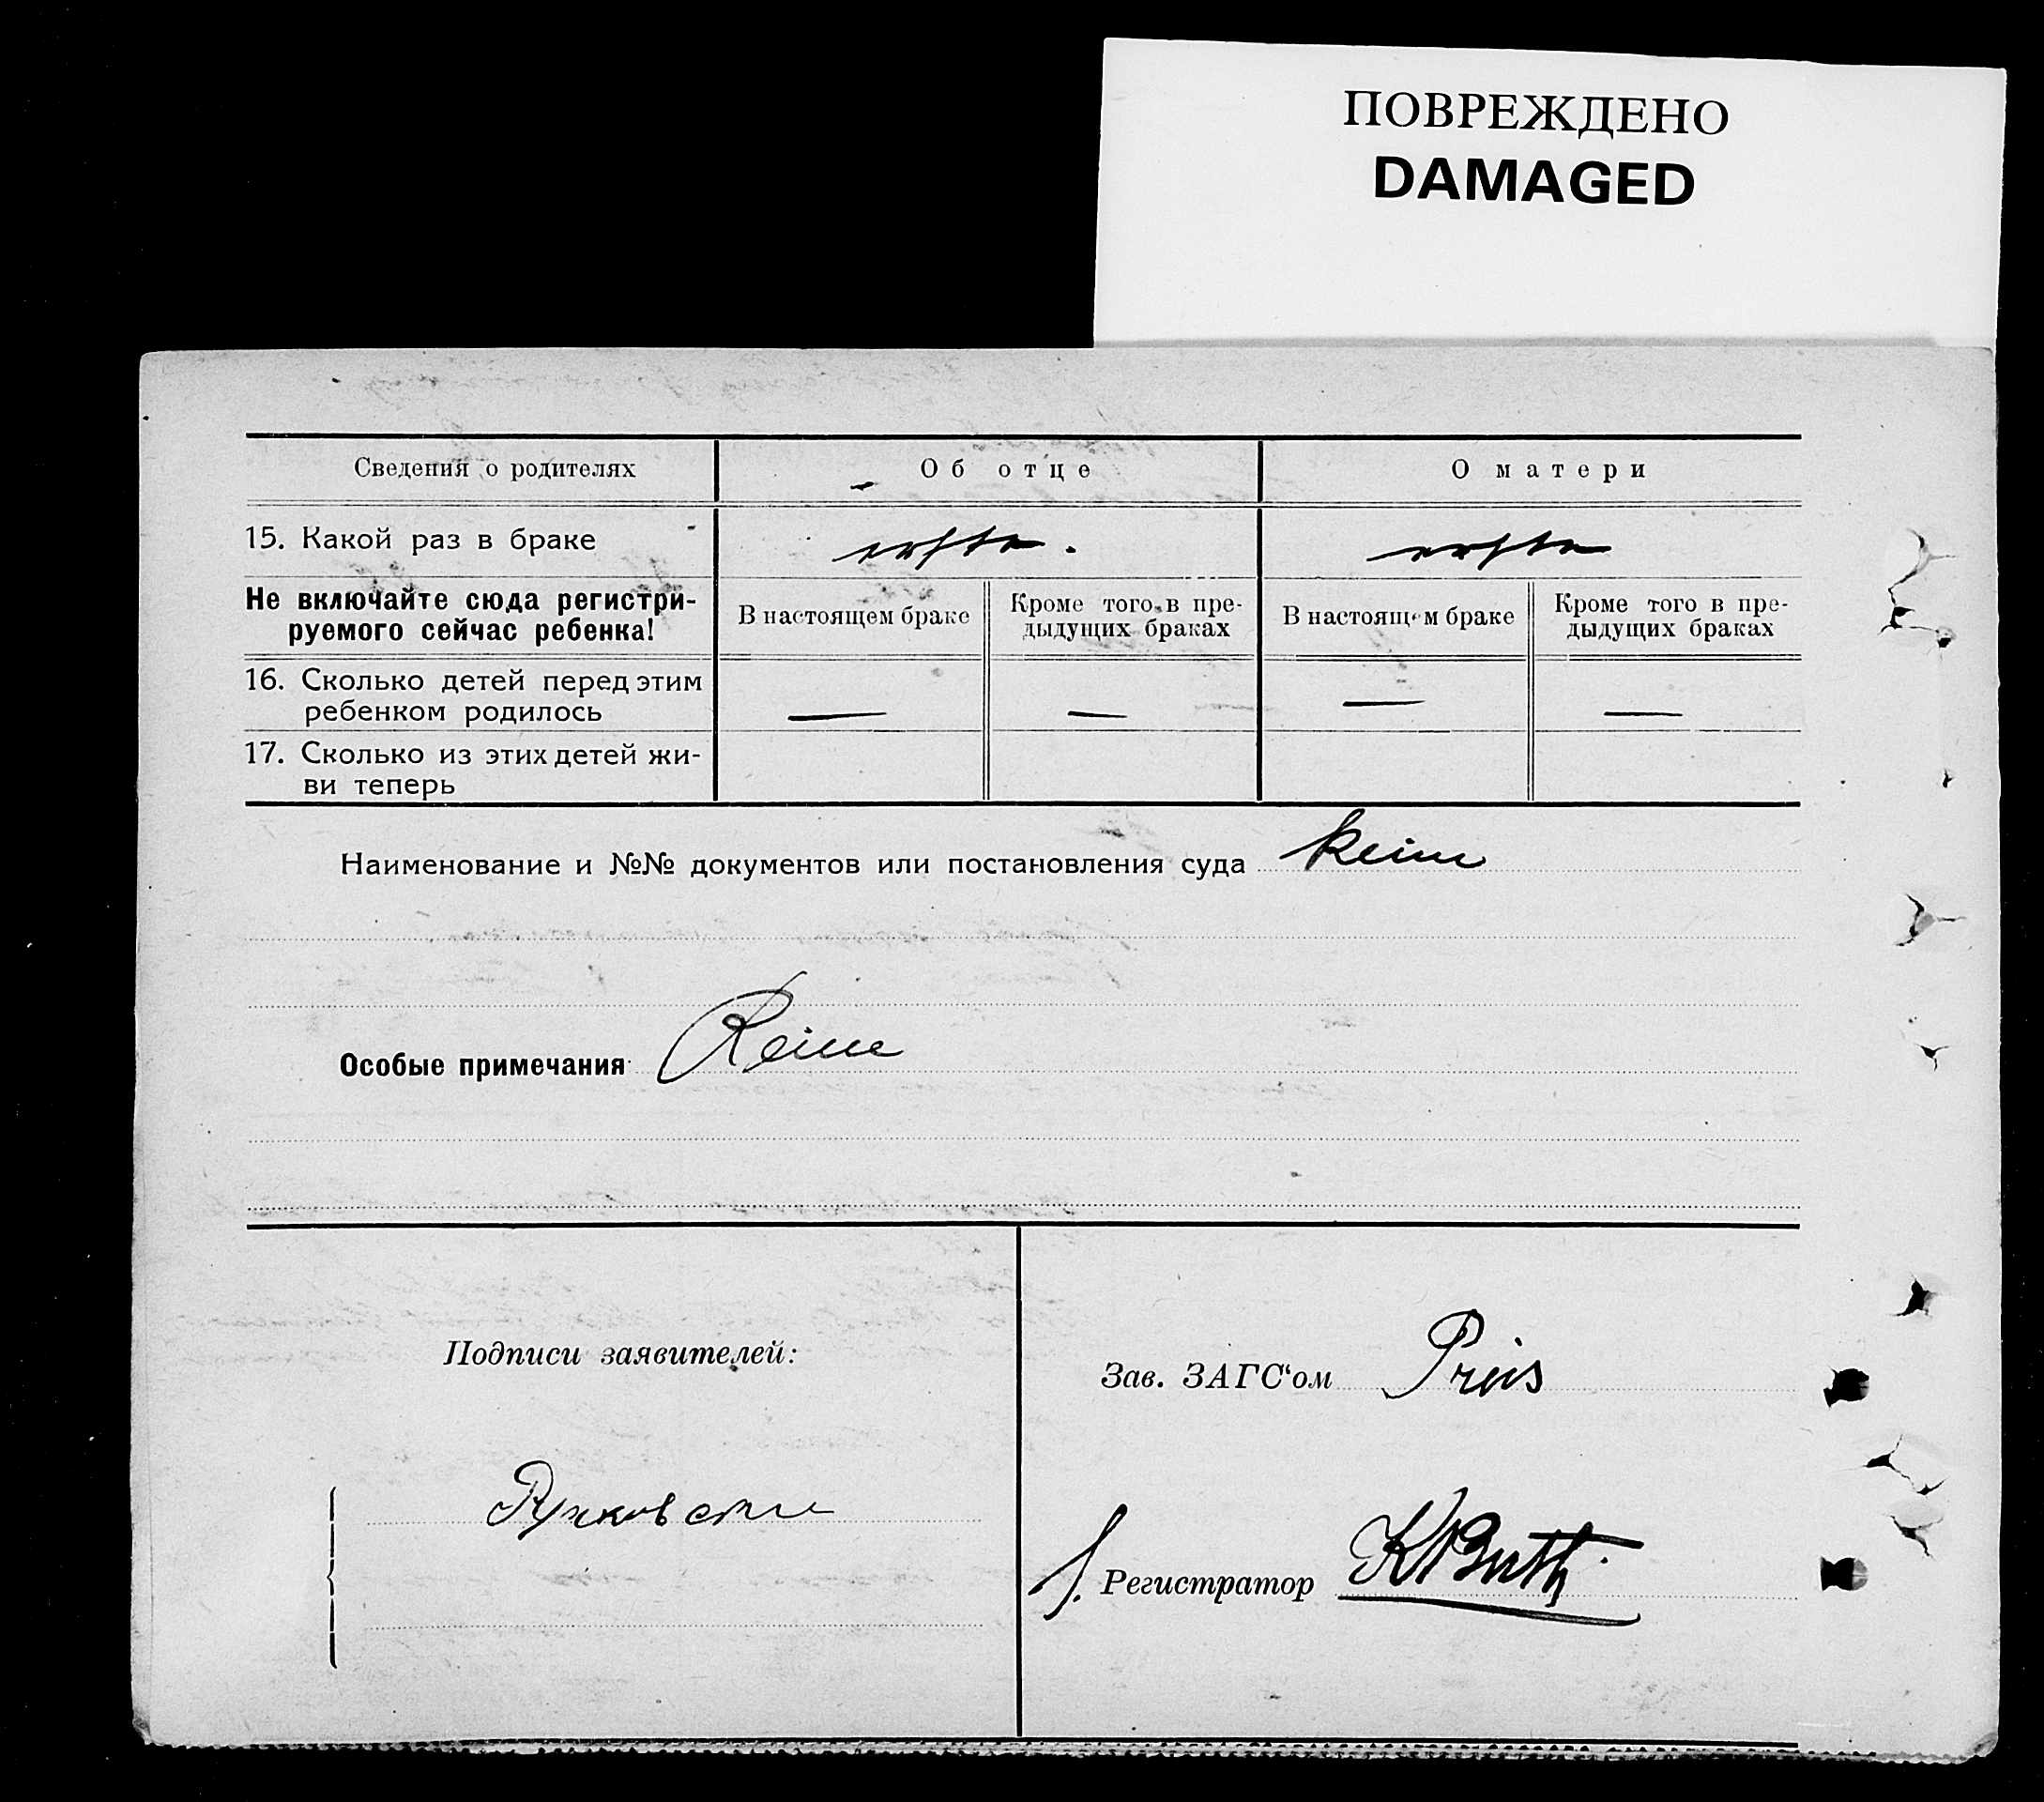 ПОВРЕЖДЕНО
DAMAGED
Сведения о родителях
Об отце
О матери
15. Какой раз в браке
erste.
erste
Не включайте сюда регистри-
руемого сейчас ребенка!
В настоящем браке
Кроме того в пре-
дыдущих браках
В настоящем браке
Кроме того в пре-
дыдущих браках
16. Сколько детей перед этим
ребенком родилось
—
—
—
—
17. Сколько из этих детей жи-
ви теперь
Наименование и №№ документов или постановления суда keine
Особые примечания Keine
Подписи заявителей:
Зав. ЗАГС‘ом Preis
Регистратор